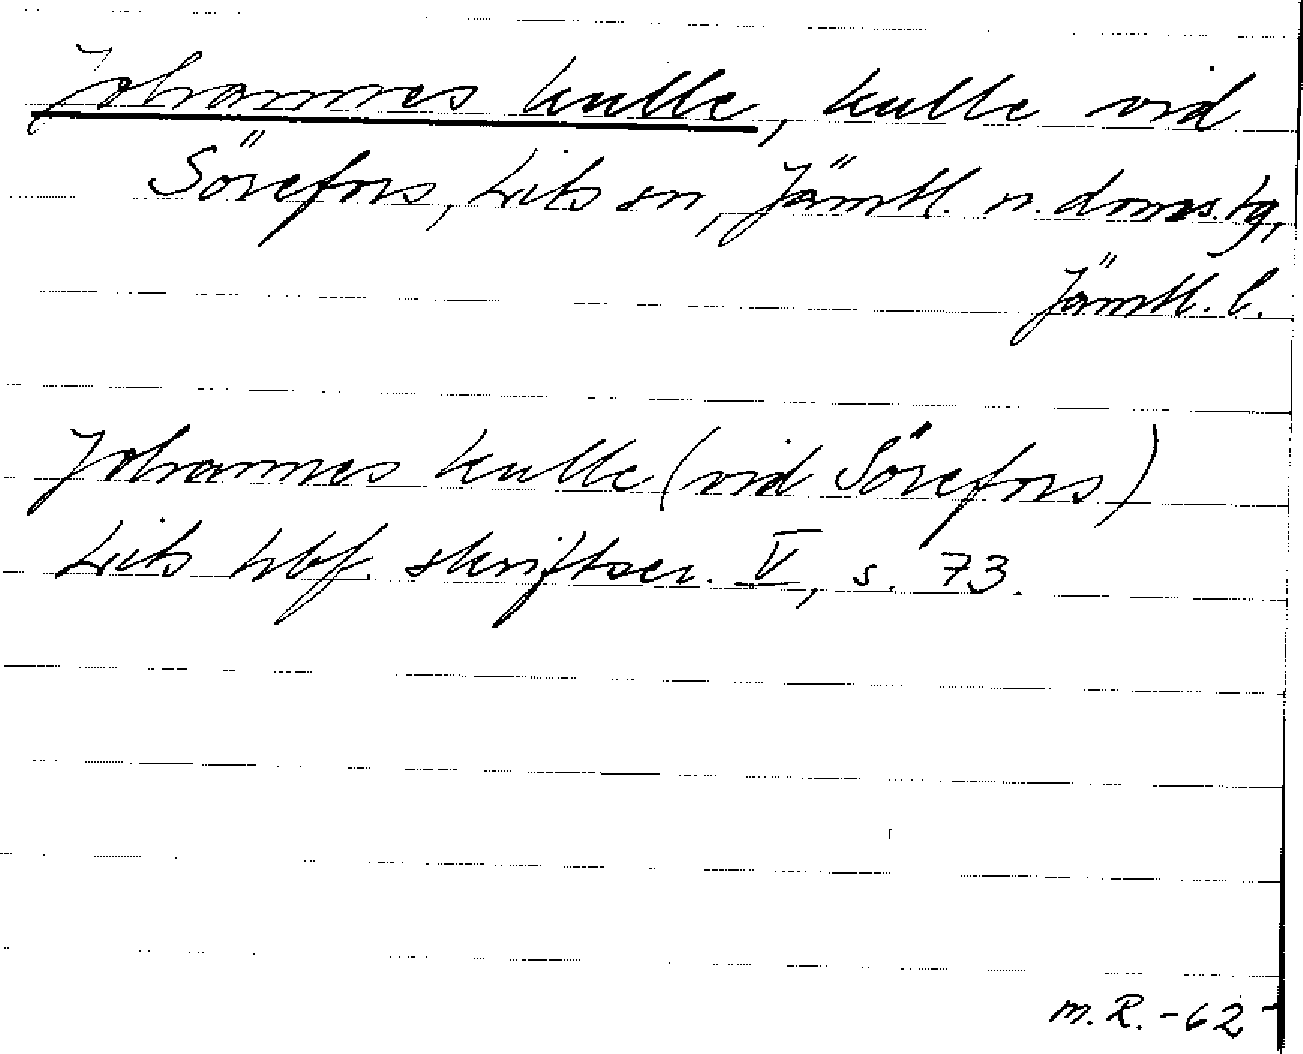 Johannes kulle, kulle vid
Sörefors, Lits sn, Jämtl. n. doms. tg,
Jämtl. l.
Johannes kulle (vid Sörefors)
Lits hbf. skriftser. V, s. 73.
M. R. - 62